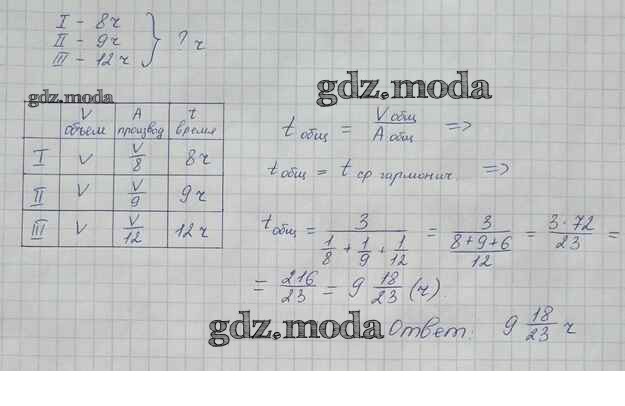 I - 8ч
II - 9ч
III - 12ч
? ч
gdz.moda
gdz.moda
V объем A производ t время
I V V/8 8ч
II V V/9 9ч
III V V/12 12ч
t общ = V общ / A общ =>
t общ = t ср гармонич. =>
t общ = 3 / (1/8 + 1/9 + 1/12) = 3 / ((8+9+6)/12) = 3·72/23 =
= 216/23 = 9 18/23 (ч).
gdz.moda
Ответ: 9 18/23 ч